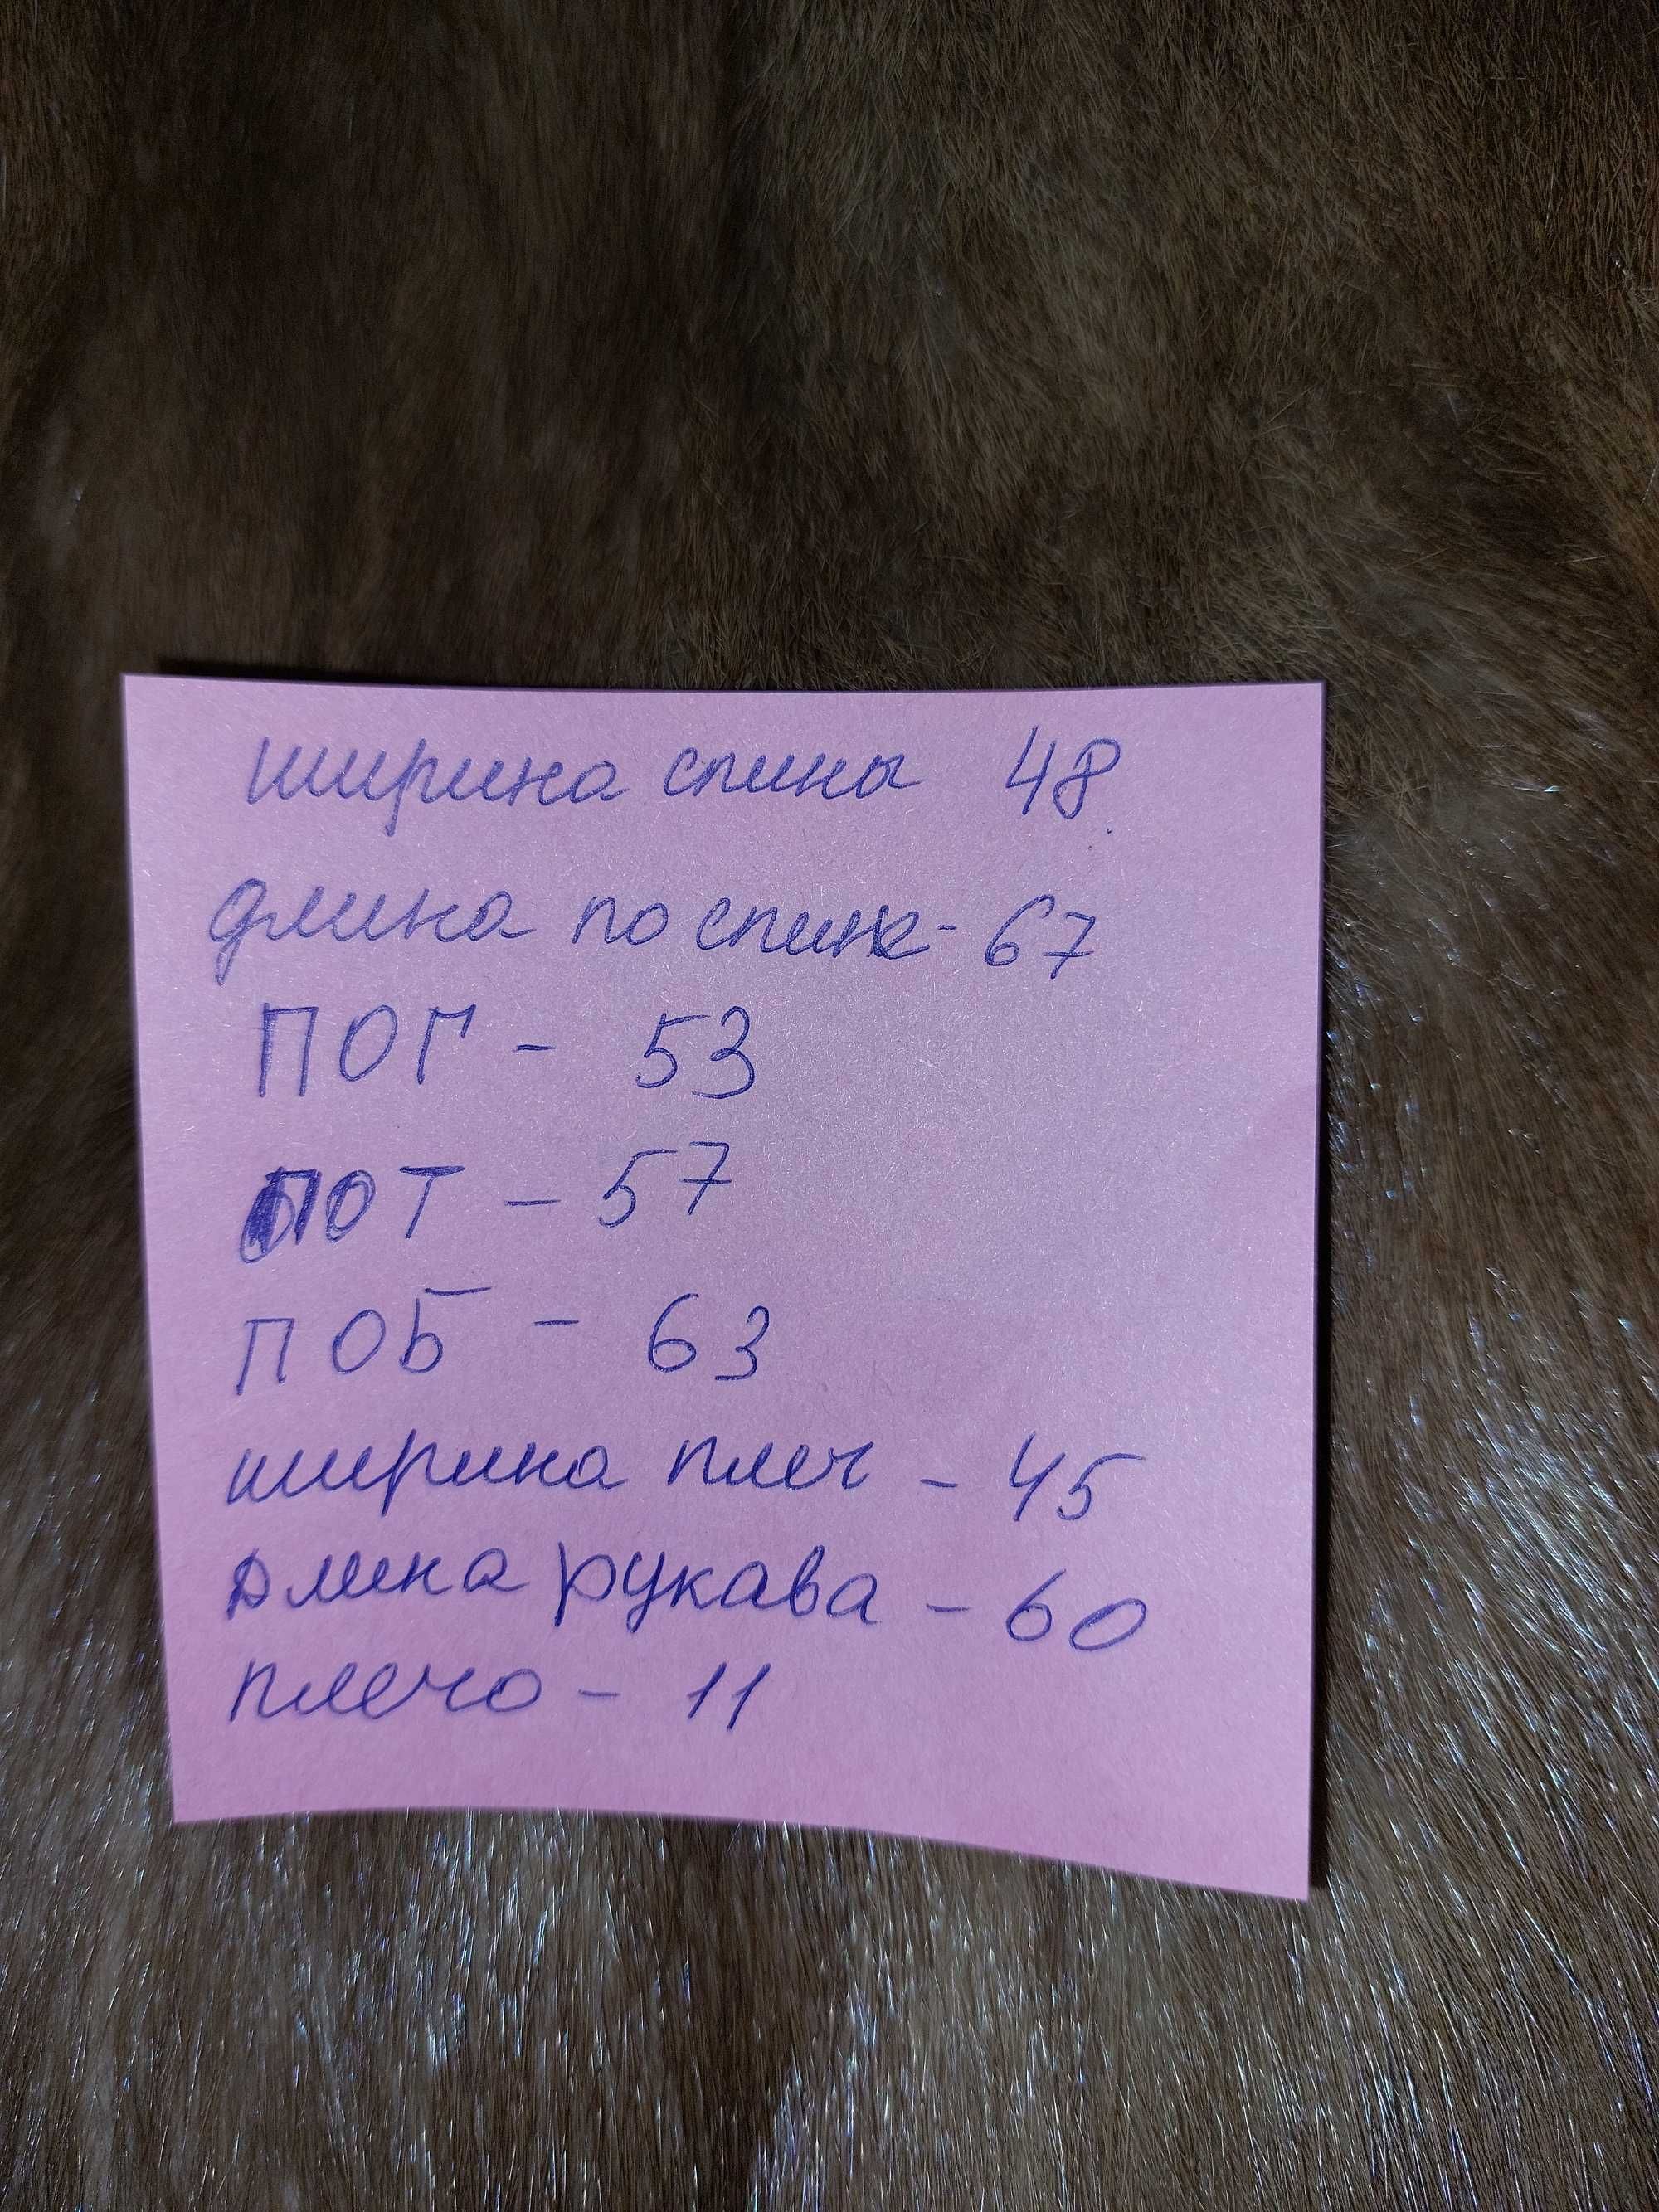 ширина спины 48
длина по спинке - 67
ПОГ - 53
ПОТ - 57
ПОБ - 63
ширина плеч - 45
Длина рукава - 60
плечо - 11